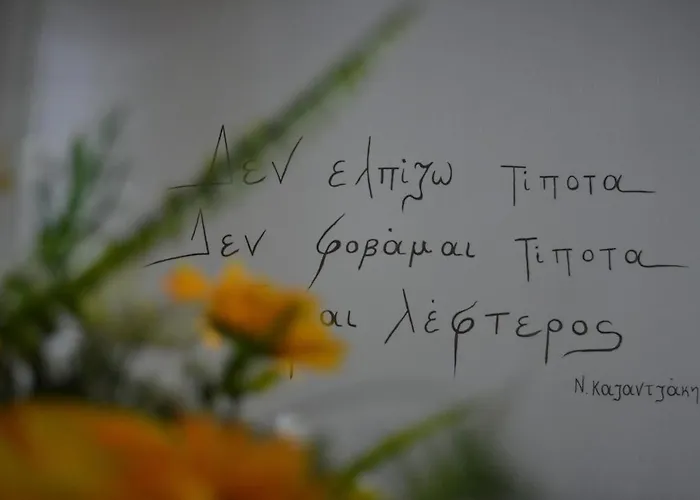 Δεν ελπίζω τίποτα
Δεν φοβάμαι τίποτα
αι λέφτερος
Ν. Καζαντζάκη